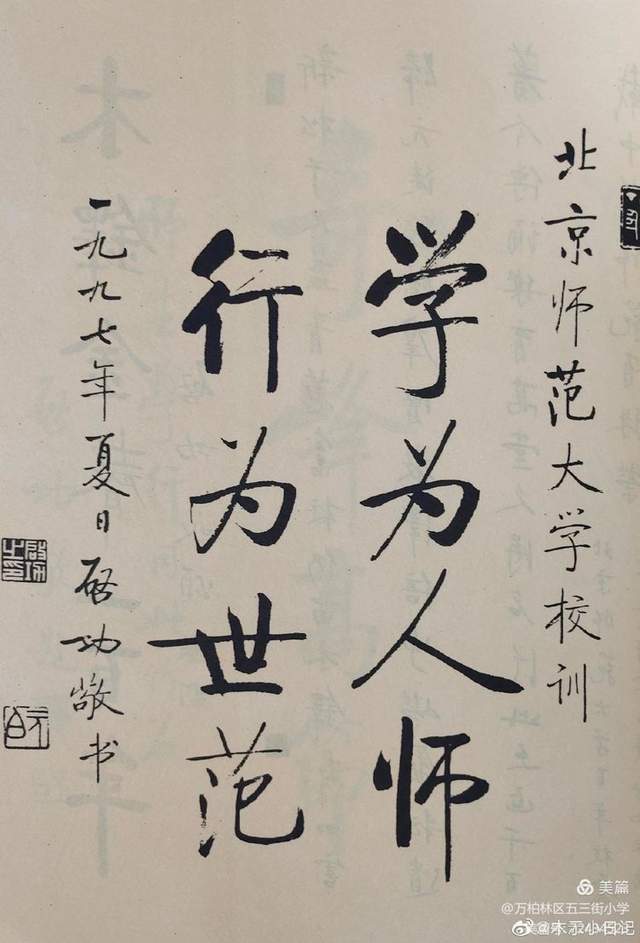 北京师范大学校训
学为人师
行为世范
一九九七年夏日启功敬书
美篇
@万柏林区五三街小学
@木子小日记